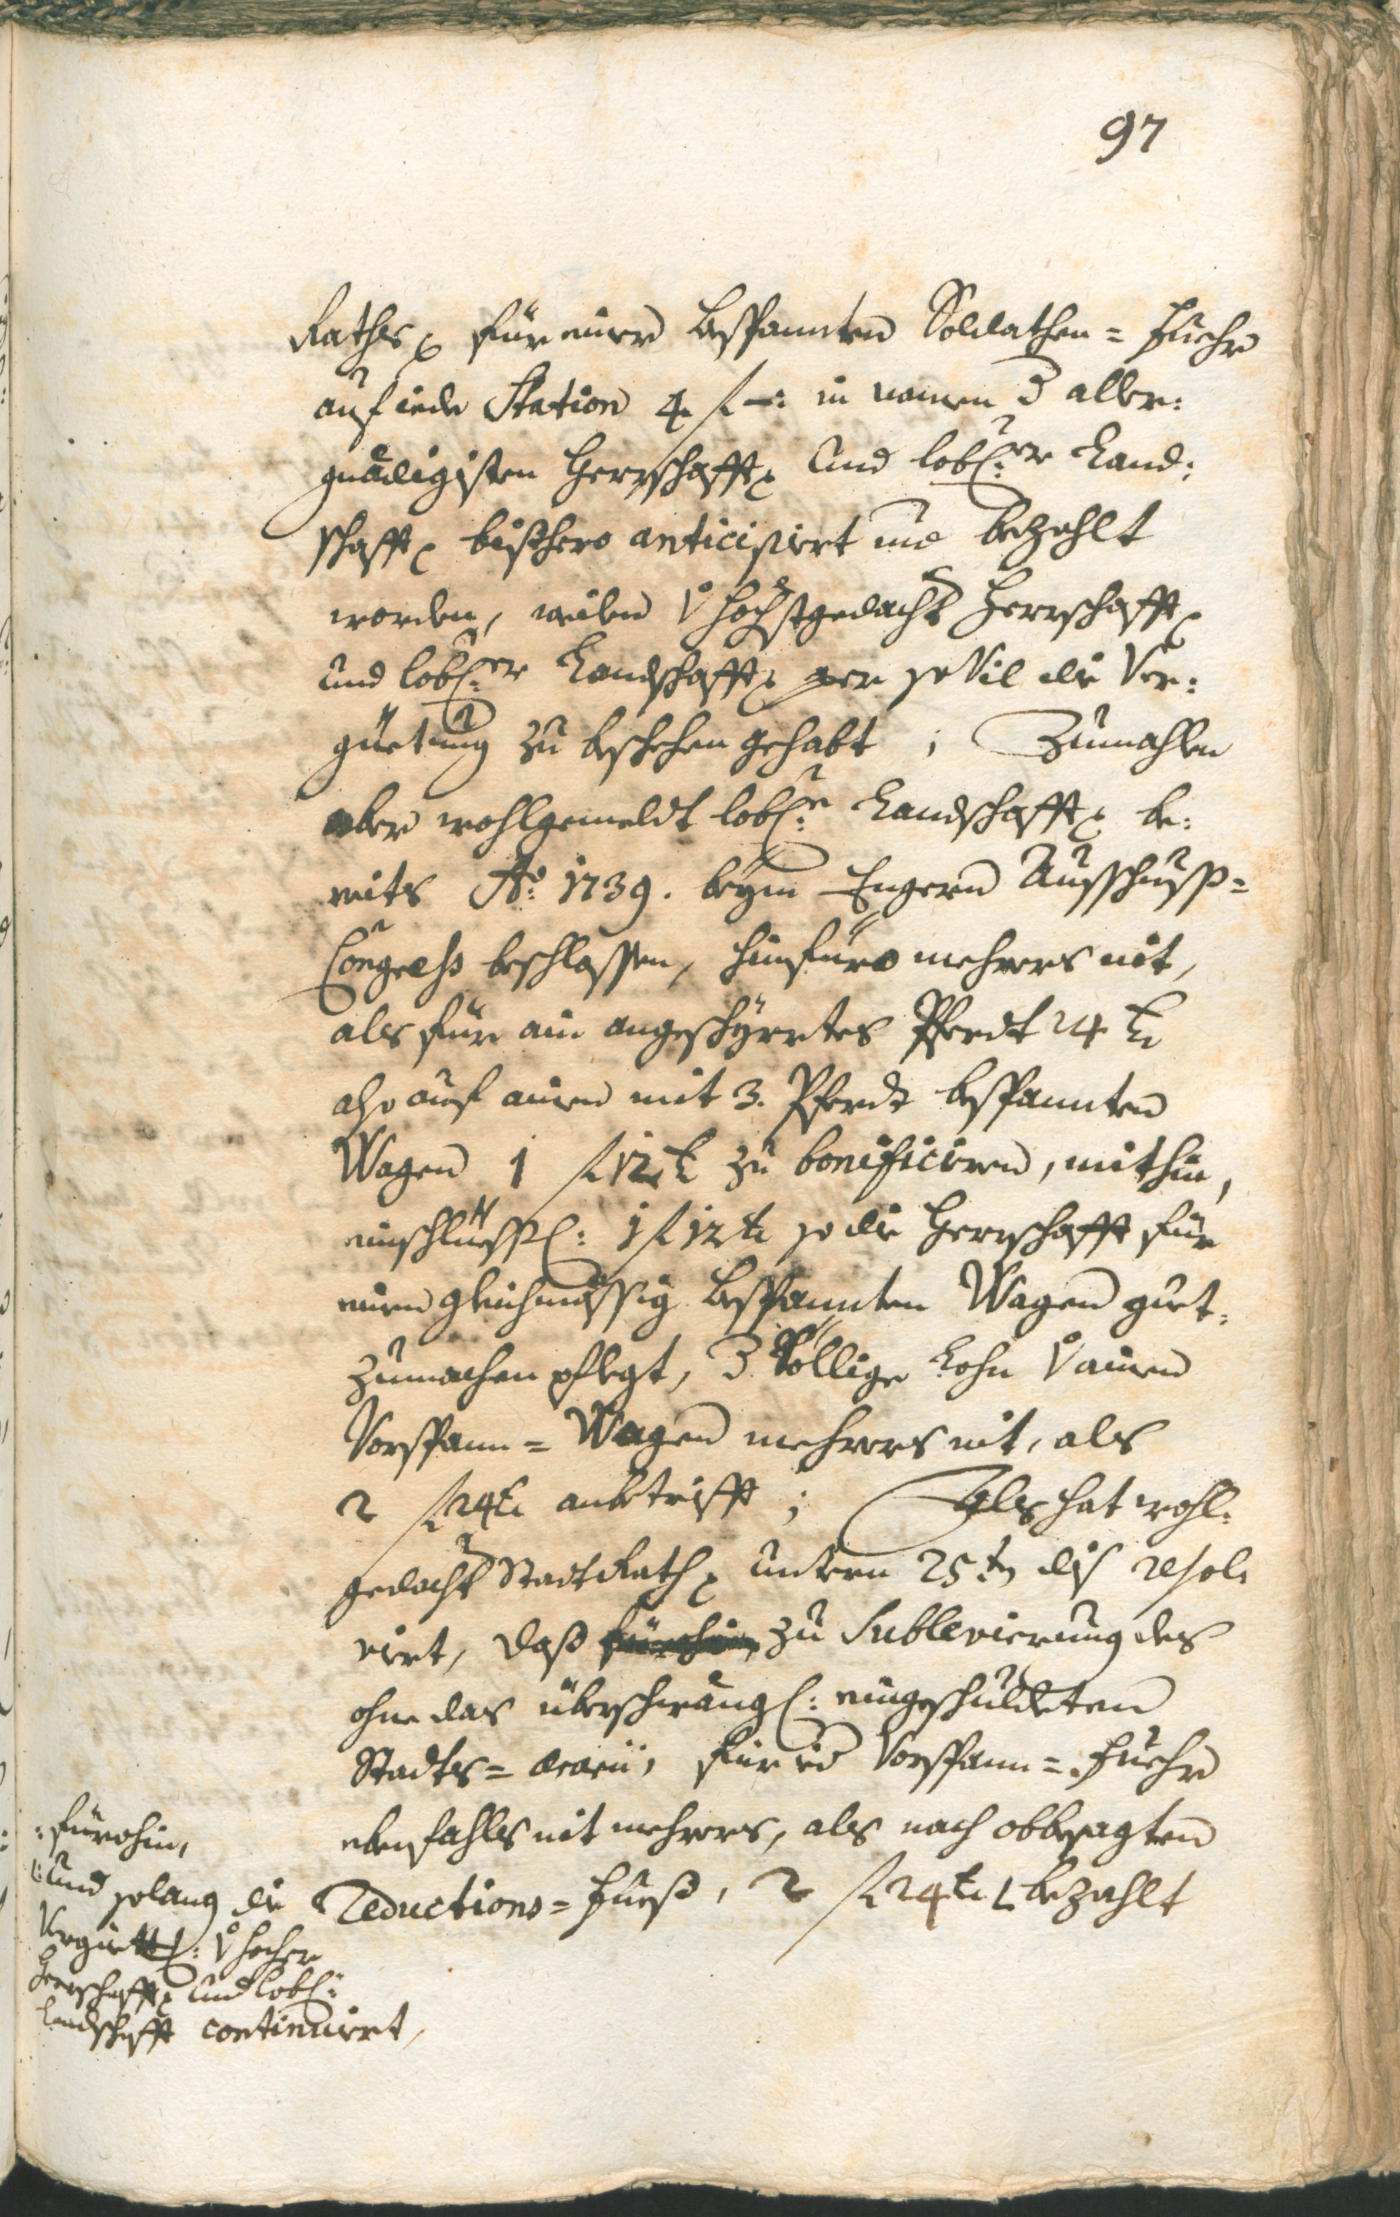 97
Raths für einen bespannten Soldathen=Fuehr
auf iede Station 4 f —: in namen d aller:
gnädigisten Herrschafft und lobl:er Land:
schafft bishero anticipiert und bezahlt
worden, weilen v höchstgedacht Herrschafft
und lobl:er Landschafft per so vil die Ver:
güetung zu beschehen gehabt; Zumahlen
aber wohlgemeldt lobl:e Landschafft be:
reits Ao. 1739. beym Engern Ausschuss=
Congress beschlossen, hinfüro mehrers nit,
als für ain angeschyrrtes Pferdt 24 kr
also auf ainen mit 3. Pferdt bespannten
Wagen 1 f 12 kr zu bonificiren, mithin,
einschlüssl: 1 f 12 kr so die Herrschafft für
einen gleichmässig bespannten Wagen guet:
zumachen pflegt, d völlige Lohn v ainen
Vorspann=Wagen mehrers nit, als
2 f 24 kr anbetrifft; Als hat wohl:
gedacht Stadt Rath untern 25ten dis resol:
virt, dass fürohin zu Sublevierung des
ohne das überschwängl: eingeschuldeten
Stadts=aerarii, für die Vorspann=Fuehr
ebenfahls nit mehrers, als nach obbesagten
Reductions=Fuess, 2 f 24 kr bezahlt
:fürohin,
:und solang die
Vergüettl: v hocher
Herrschafft und lobl:
Landschafft continuirt,